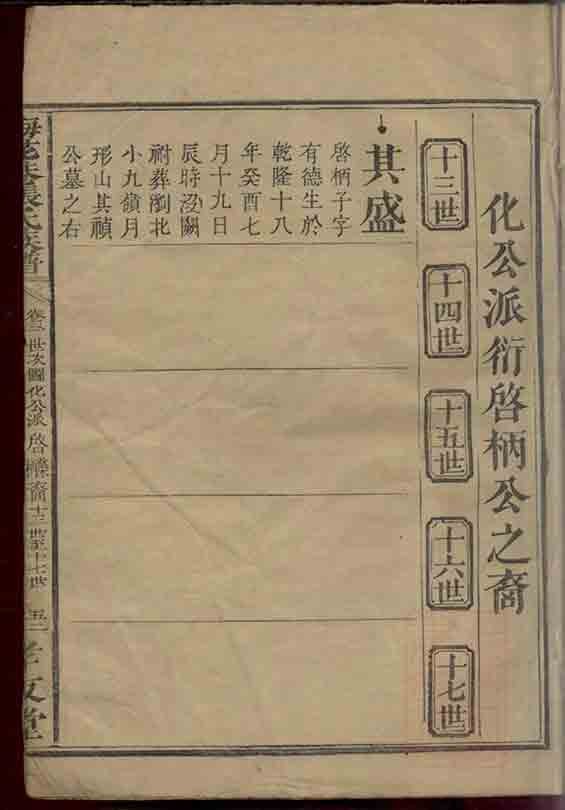 化公派衍啓柄公之裔
十三世
十四世
十五世
十六世
十七世
其盛
啓柄子字
有德生於
乾隆十八
年癸酉七
月十九日
辰時殁闕
祔葬瀏北
小九嶺月
形山其禎
公墓之右
氏族譜
卷三世次圖化公派啓柄裔十三世至十七世
孝友堂